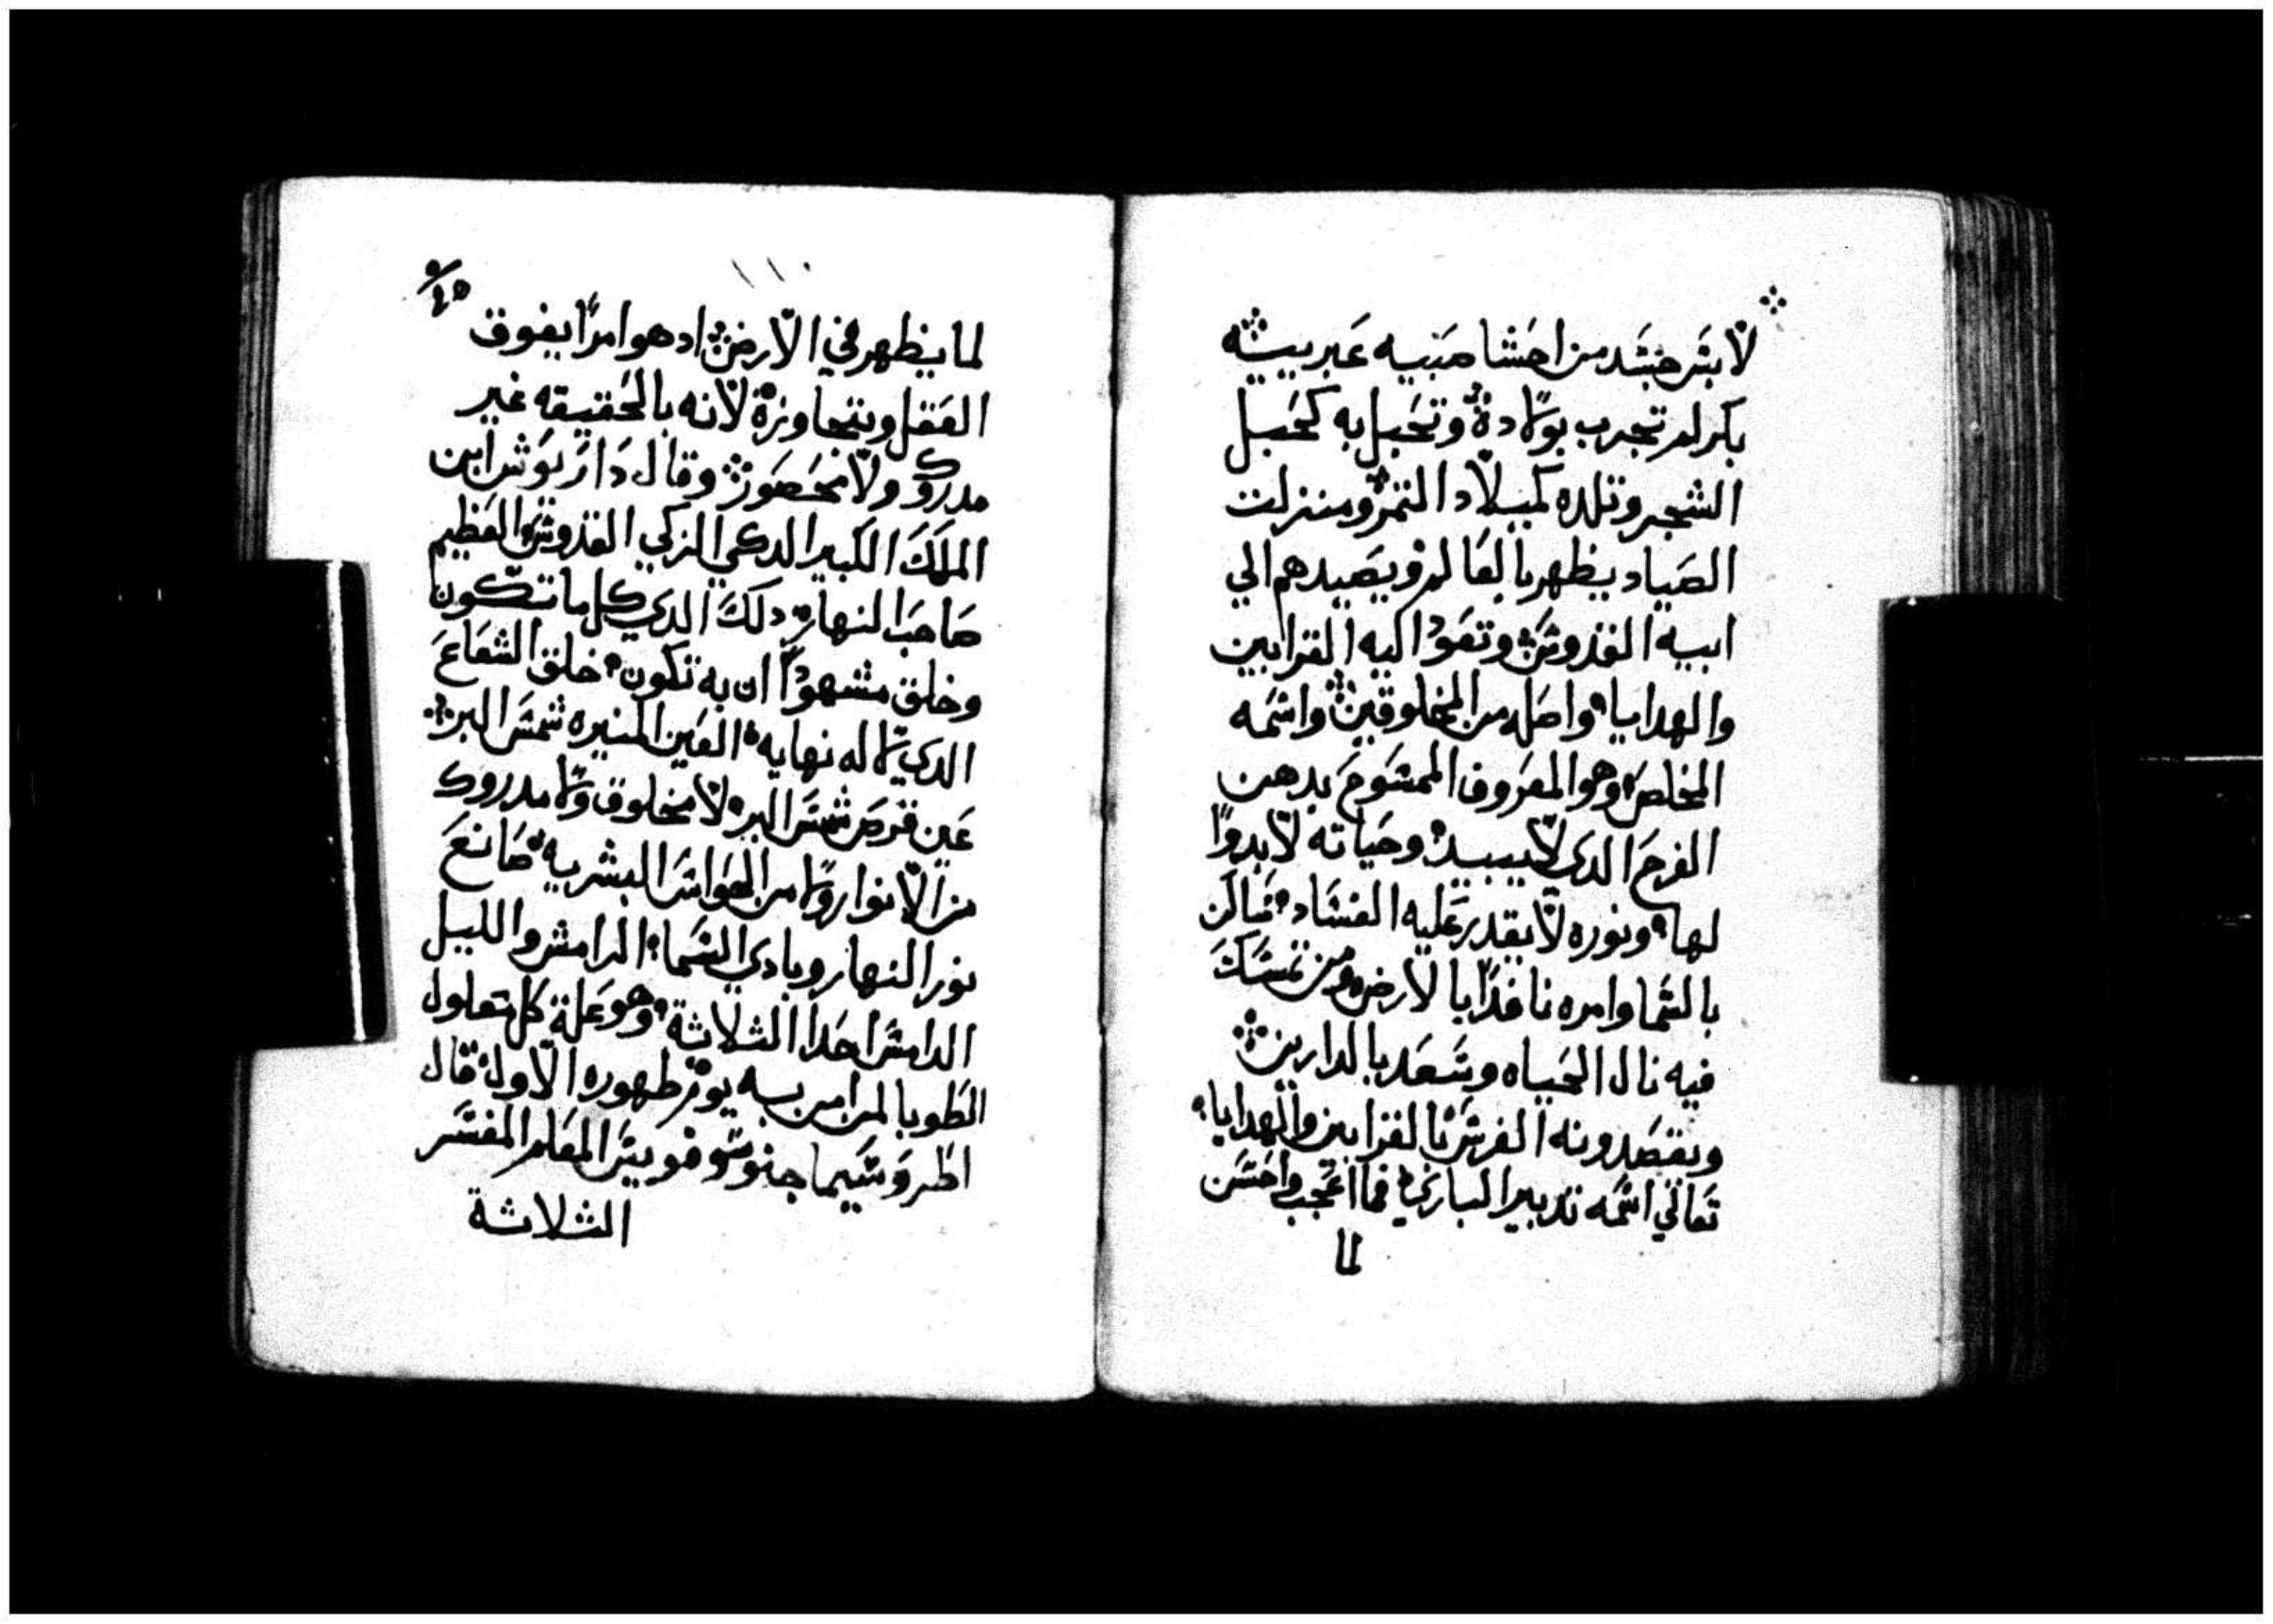 لابس جسد من احشا صبيه عبريه
بكر لم تجرب بولادة وتحبل به كحبل
الشجر وتلده كميلاد الثمر ومنزلت
الصياد يظهر بالعالم ويصيدهم الي
ابيه القدوس وتعود اليه القرابين
والهدايا واصله من المخلوقين واسمه
المخلص وهو المعروف الممسوح بدهن
الفرح الدي لا يبيد وحياته لا بدوا
لها ونوره لا يقدر عليه الفساد
بالسما وامره نافدا بالارض ومن تمسك
فيه نال الحياه وسعد بالدارين
ويقصدونه الفرس بالقرابين والهدايا
تعالي اسمه تدبير الباري فما اعجب واحسن
لما
لما يظهر في الارض اد هو امرا يفوق
العقل ويتجاوزة لانه بالحقيقه غير
مدروك ولا محصور وقال داريوش ابن
الملك الكبير الدكي الزكي القدوس العظيم
صاحب النهار دلك الدي كل ما تكون
وخلق مشهودا ان به تكون خلق الشعاع
الدي لا له نهايه العين المنيره شمس البر
عين قرص شمس البر لا مخلوق ولا مدروك
من الانوار ولا من الحواس البشريه صانع
نور النهار وبادي السما الدامس والليل
الدامس احد الثلاثة وهو علة كل معلول
الطوبا لمن امن به يوم ظهوره الاول قال
المعلم المفسر
الثلاثة